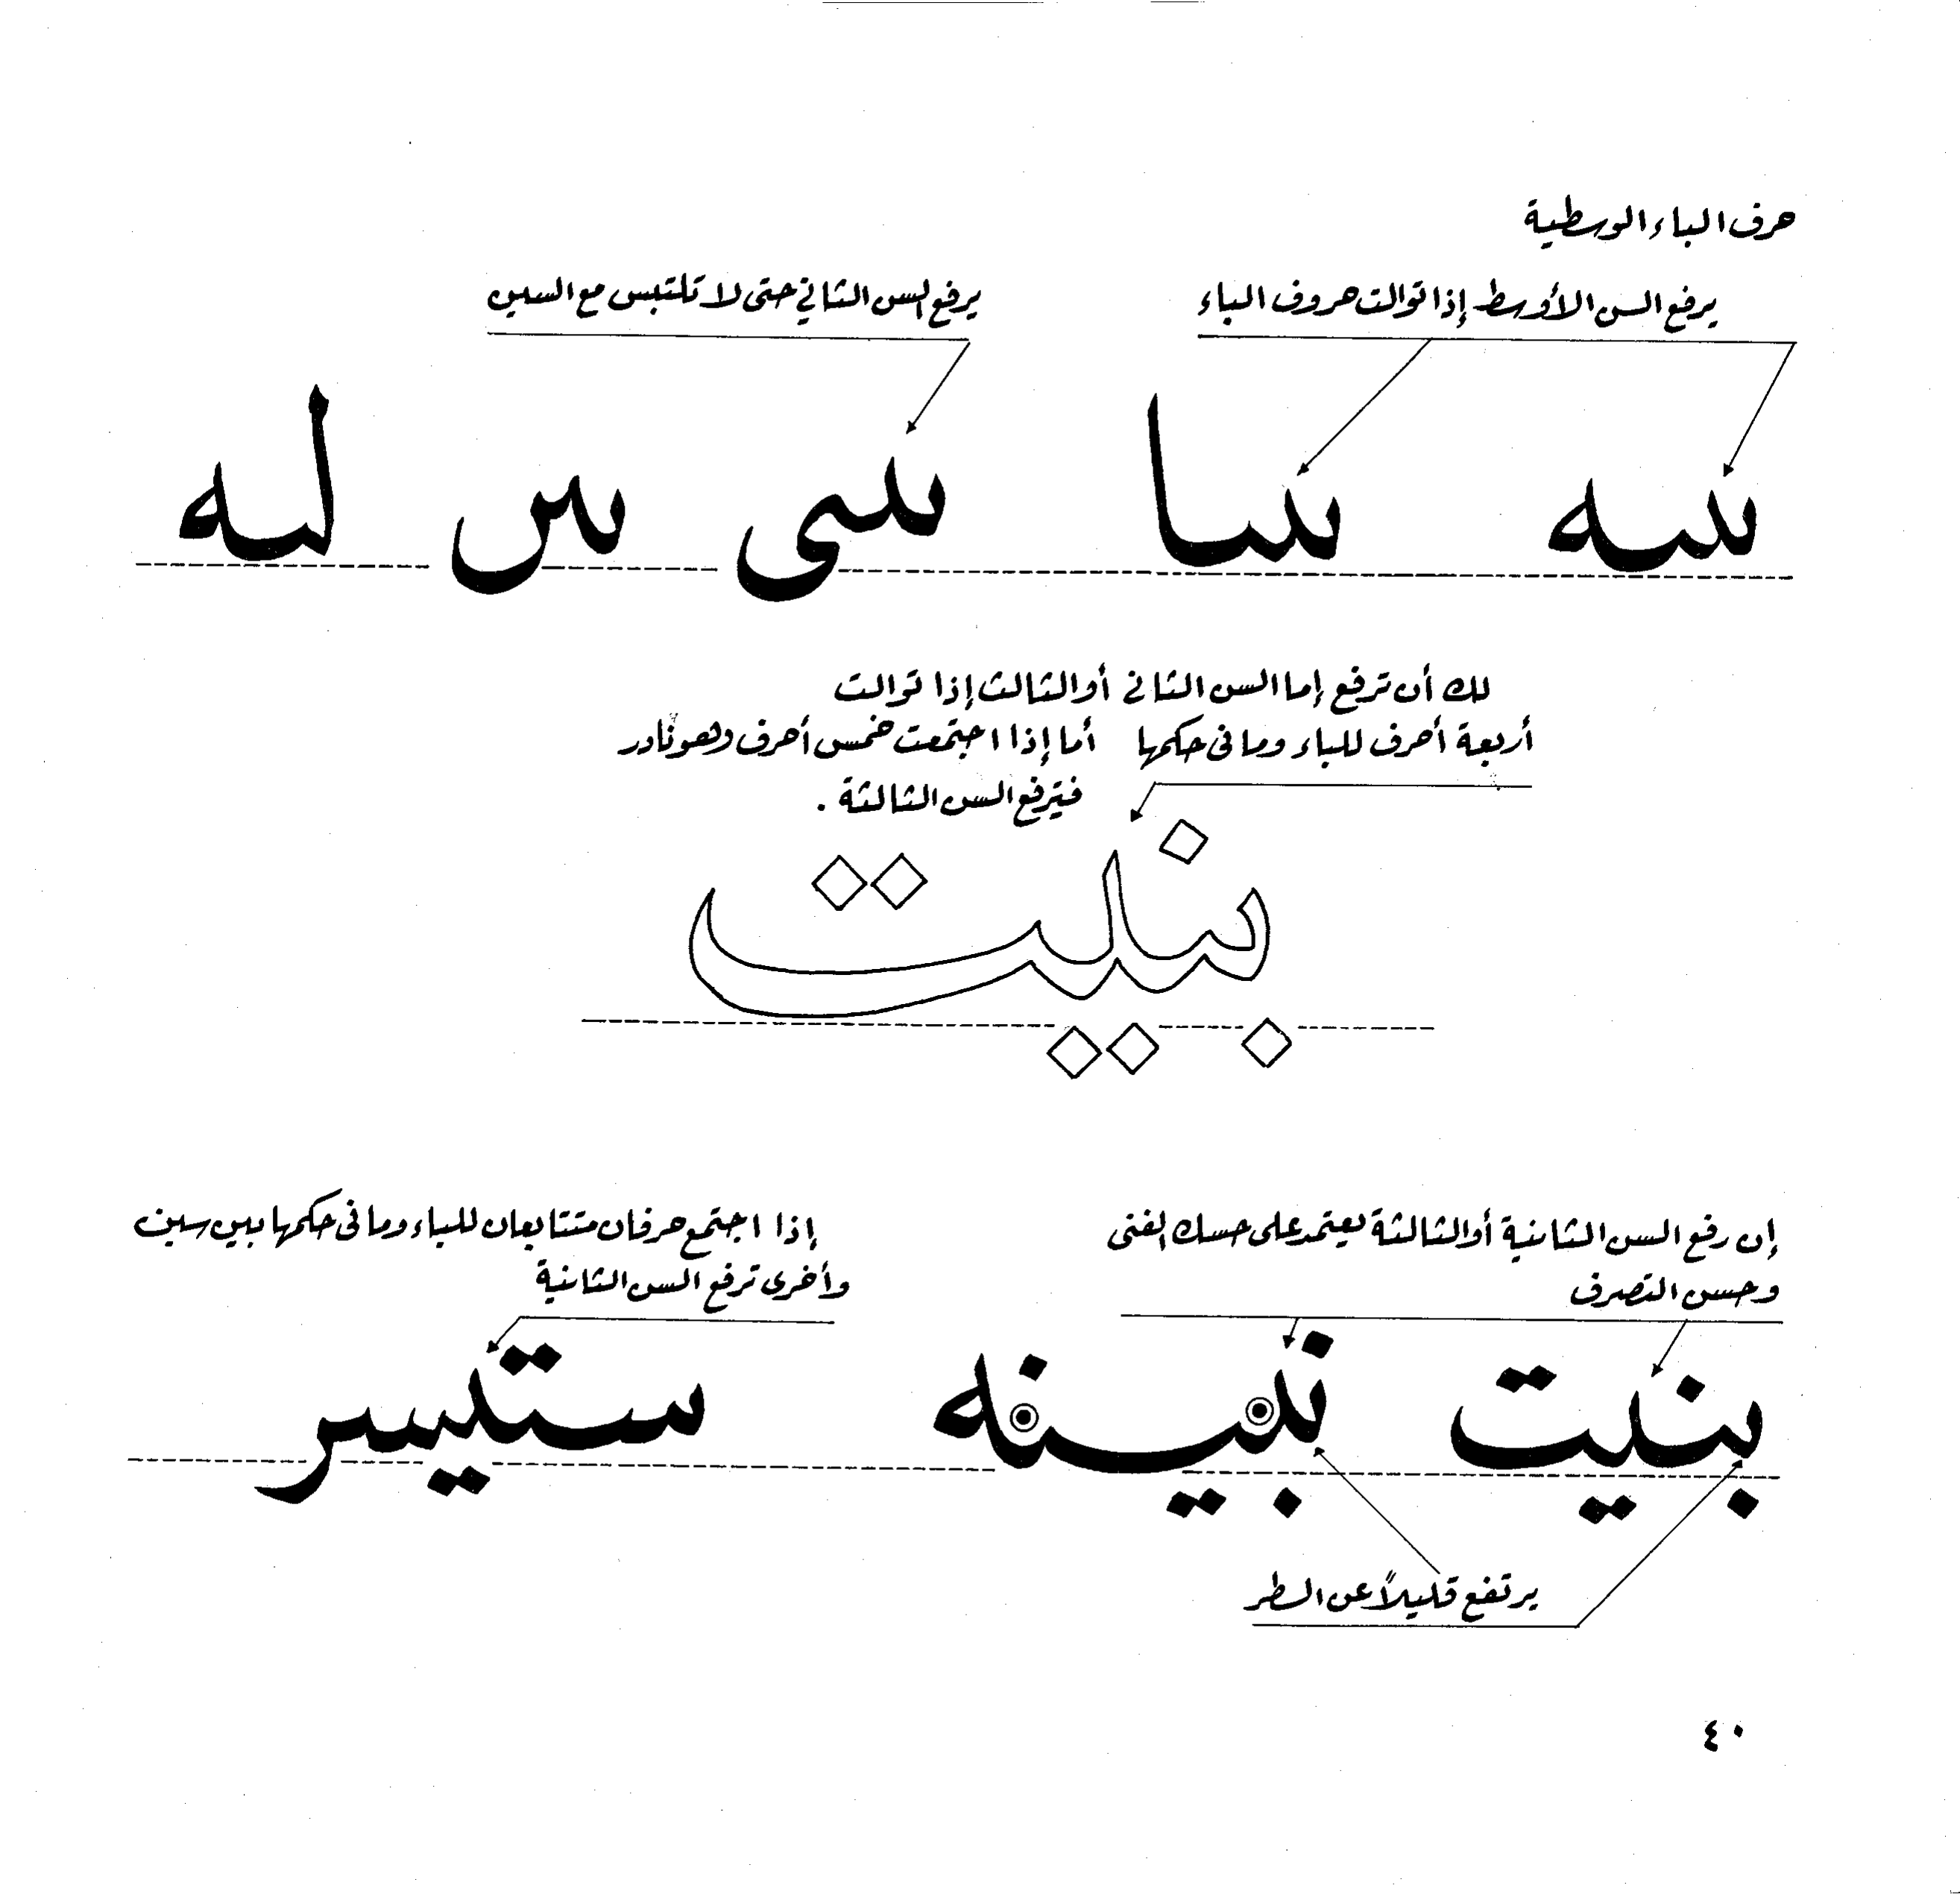 حرف الباء الوسطية
يرفع السن الأوسط إذا توالت حروف الباء
يرفع السن الثاني حتى لا تلتبس مع السين
لك أن ترفع إما السن الثاني أو الثالث إذا توالت
أربعة أحرف للباء وما في حكمها أما إذا اجتمعت خمس أحرف وهو نادر
فترفع السن الثالثة .
بنيت
إن رفع السن الثانية أو الثالثة يعتمد على حسك الفني
وحسن التصرف
إذا اجتمع حرفان متتابعان للباء وما في حكمها بين سين
وأخرى ترفع السن الثانية
بنيت نبينه ستيسر
يرتفع قليلاً عن السطر
٤٠